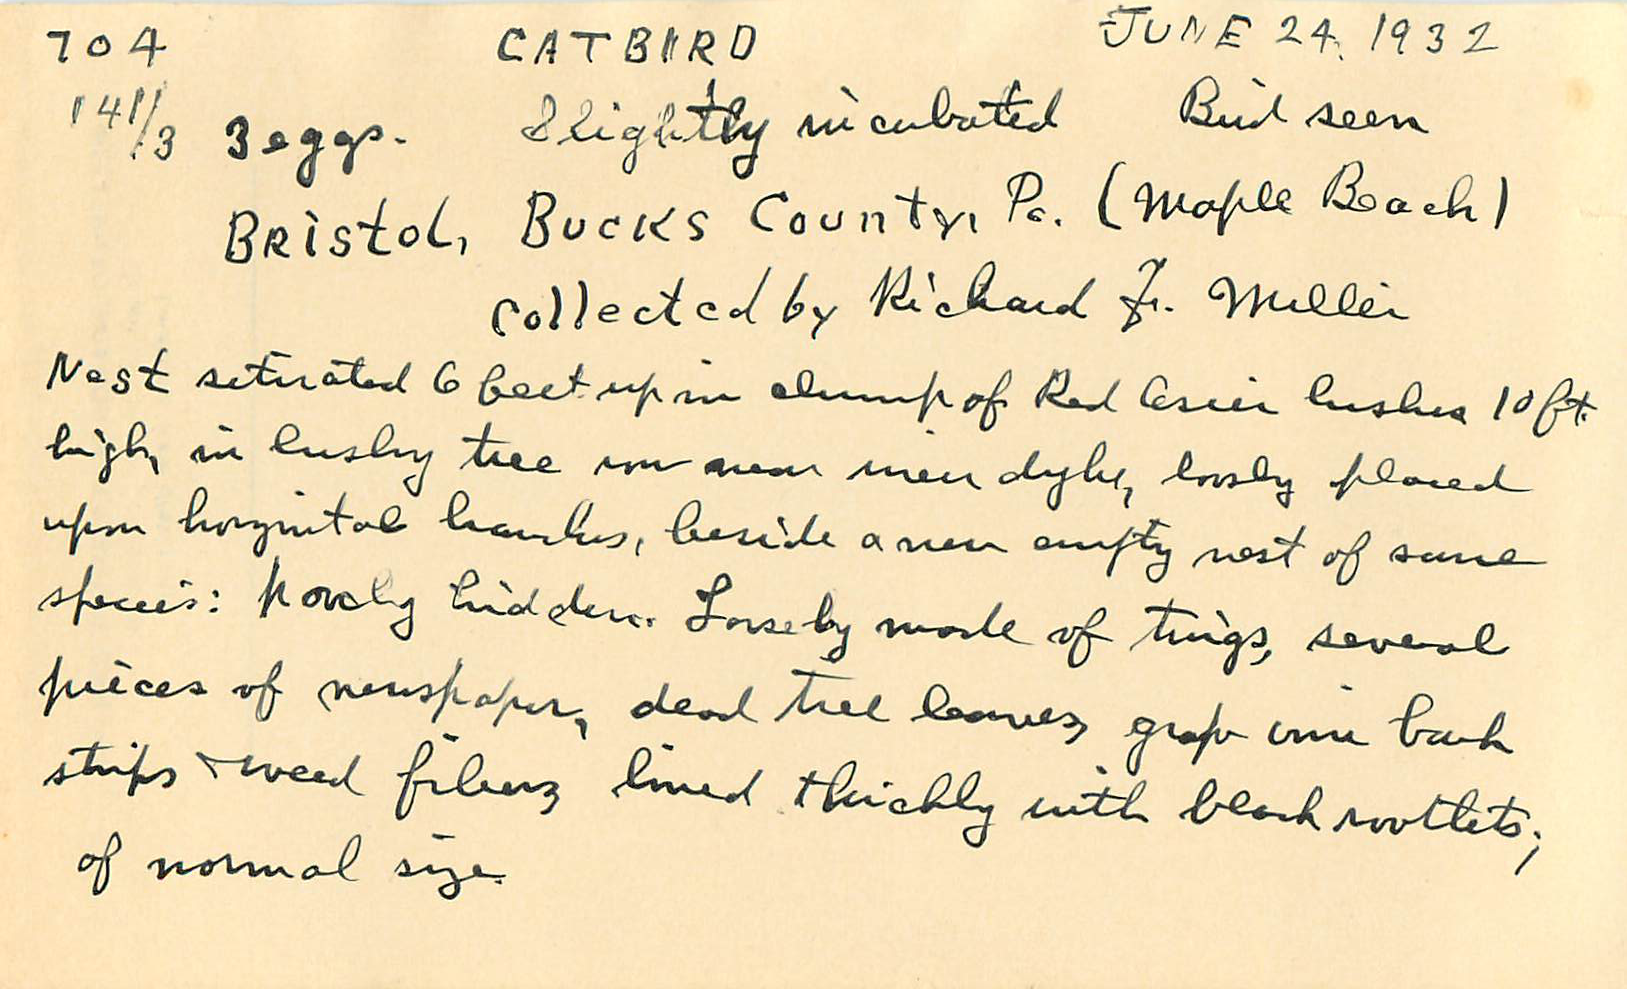 704 CATBIRD JUNE 24, 1932
141/3 3 eggs. Slightly incubated Bird seen
Bristol, Bucks County, Pa. (Maple Beach)
Collected by Richard F. Miller
Nest situated 6 feet up in clump of Red Osier bushes 10 ft.
high, in bushy tree row near river dyke, loosely placed
upon horizontal branches, beside a new empty nest of same
species: hidden. Loosely made of twigs, several
pieces of newspaper, dead tree leaves, grape vine bark
strips & weed fibers, lined thickly with black rootlets;
of normal size.